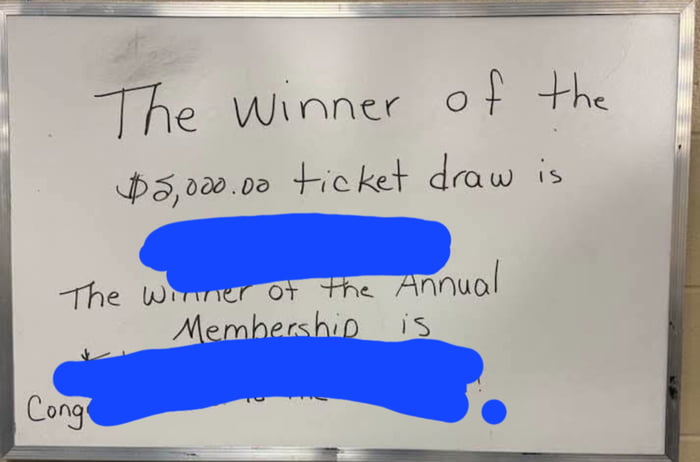 The Winner of the
$5,000.00 ticket draw is
The Winner of the Annual
Membership is